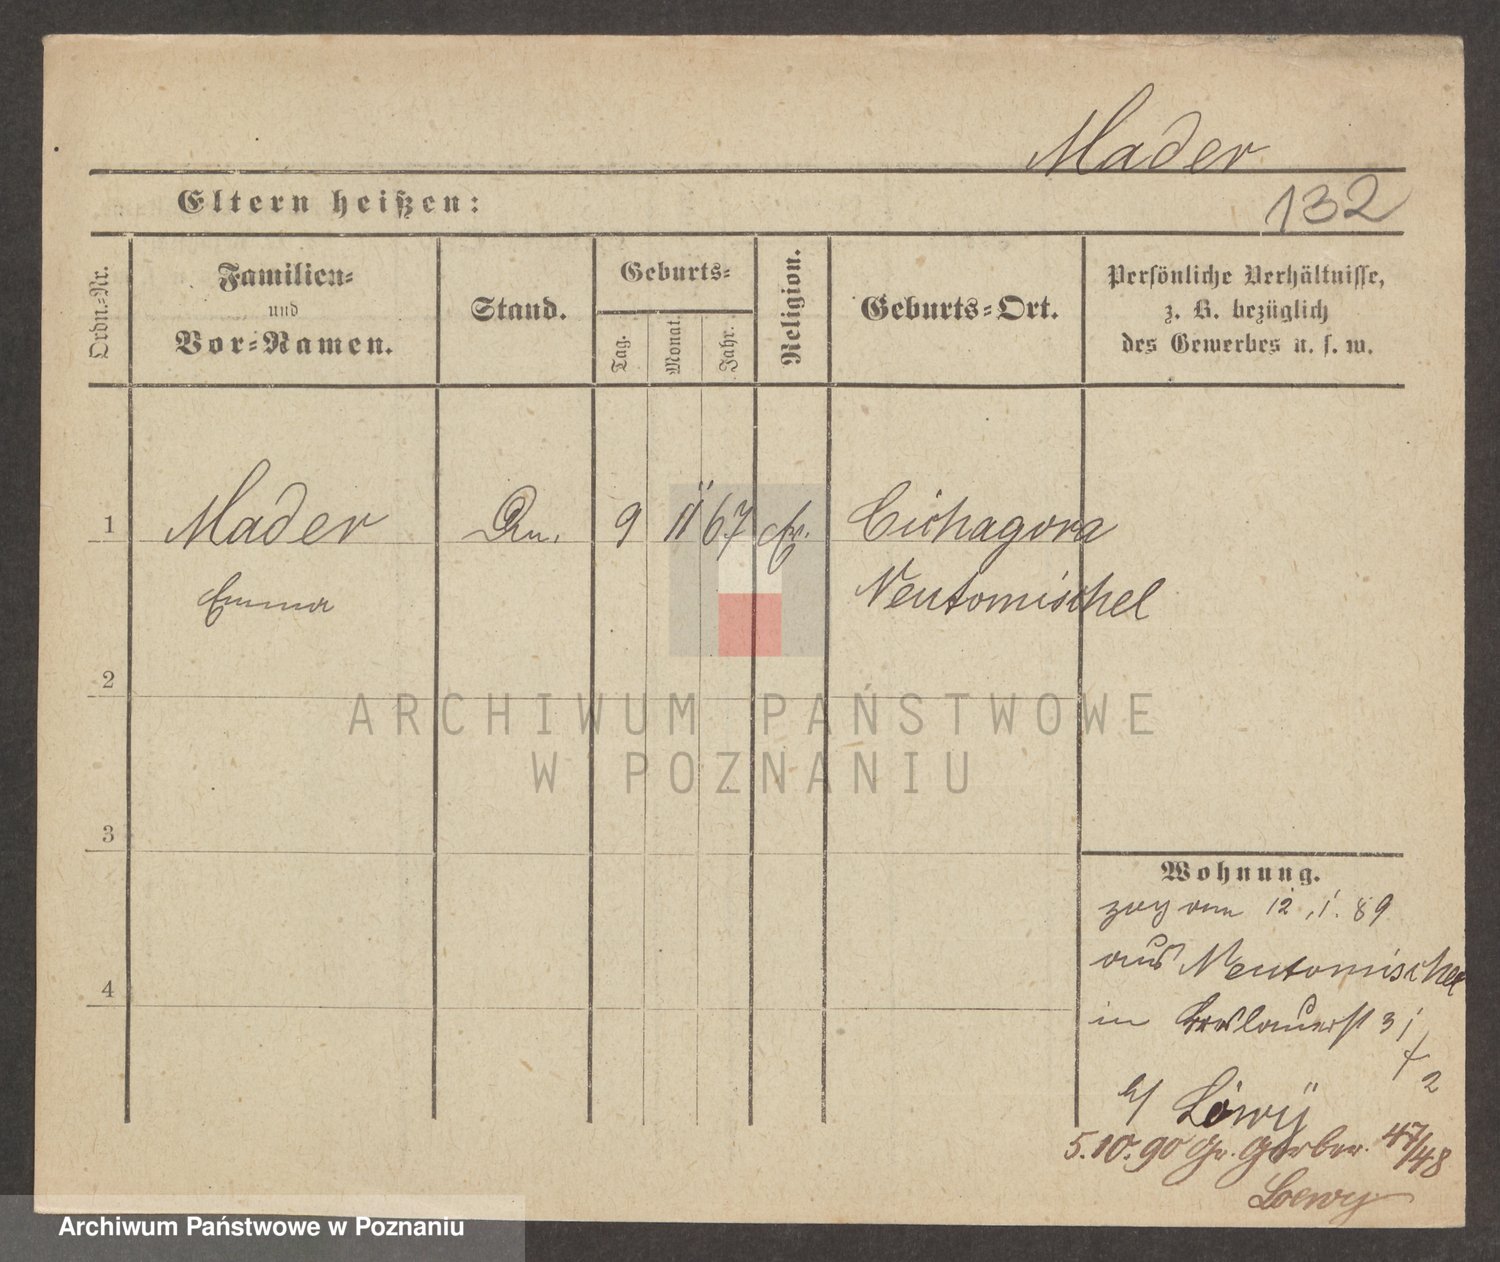 Mader
Eltern heißen:
132
Ordn.-Nr.
Familien-
und
Vor-Namen.
Stand.
Geburts-
Tag.
Monat.
Jahr.
Religion.
Geburts-Ort.
Persönliche Verhältnisse,
z. B. bezüglich
des Gewerbes u. s. w.
1
Mader
9
11
67
Cichagora
Emma
Neutomischel
2
ARCHIWUM PAŃSTWOWE
W POZNANIU
3
Wohnung.
zog am 12.1.89
aus Neutomischel
4
in Breslauerst 31
2
b/ Löwy
5.10.90 Gr. Gerber. 47/48
Loewy
Archiwum Państwowe w Poznaniu